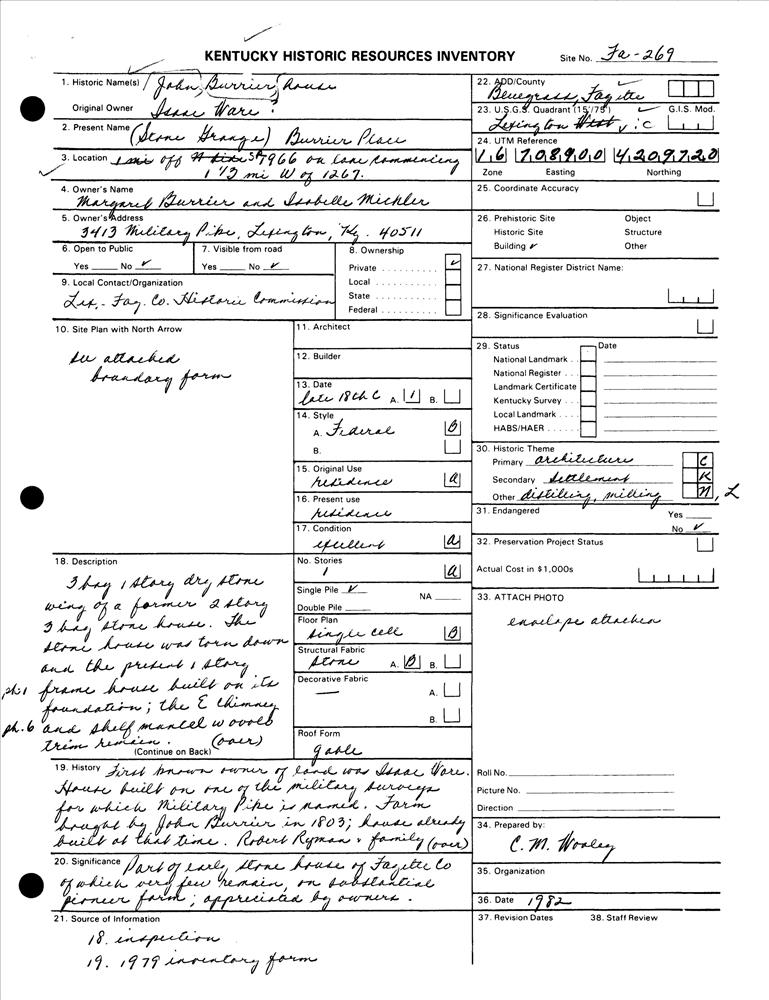 KENTUCKY HISTORIC RESOURCES INVENTORY
Site No. Fa-269
1. Historic Name(s) (John Burrier house
Original Owner Isaac Ware?
2. Present Name (Stone Grange) Burrier Place
3. Location 1 mi off 7966 on lane commencing
1 1/3 mi W of 1267.
4. Owner's Name
Margaret Burrier and Isabelle Mickler
5. Owner's Address
3413 Military Pike, Lexington, Ky. 40511
6. Open to Public
Yes No ✓
7. Visible from road
Yes No ✓
8. Ownership
Private .......... ✓
Local ..........
State ..........
Federal ..........
9. Local Contact/Organization
Lex.-Fay. Co. Historic Commission
10. Site Plan with North Arrow
see attached
boundary form
11. Architect
12. Builder
13. Date
late 18th C A. 1 B.
14. Style
A. Federal B
B.
15. Original Use
residence a
16. Present use
residence
17. Condition
excellent a
No. Stories
1 a
Single Pile ✓ NA
Double Pile
Floor Plan
single cell B
Structural Fabric
stone A. B B.
Decorative Fabric
— A.
B.
Roof Form
gable
18. Description
3 bay 1 story dry stone
wing of a former 2 story
3 bay stone house. The
stone house was torn down
and the present 1 story
ph. 1 frame house built on its
foundation; the E chimney
ph. 6 and shelf mantel w ovolo
trim remain. (over)
(Continue on Back)
19. History First known owner of land was Isaac Ware.
House built on one of the military surveys
for which Military Pike is named. Farm
bought by John Burrier in 1803; house already
built at that time. Robert Ryman & family (over)
20. Significance Part of early stone house of Fayette Co
of which very few remain, on substantial
pioneer farm; appreciated by owners.
21. Source of Information
18. inspection
19. 1979 inventory form
22. ADD/County
Bluegrass, Fayette
23. U.S.G.S. Quadrant (15'/75') G.I.S. Mod.
Lexington West
24. UTM Reference
16 708900 4209720
Zone Easting Northing
25. Coordinate Accuracy
26. Prehistoric Site Object
Historic Site Structure
Building ✓ Other
27. National Register District Name:
28. Significance Evaluation
29. Status Date
National Landmark ..
National Register ...
Landmark Certificate
Kentucky Survey ...
Local Landmark ....
HABS/HAER ......
30. Historic Theme
Primary architecture C
Secondary settlement K
Other distilling, milling N, L
31. Endangered Yes
No ✓
32. Preservation Project Status
Actual Cost in $1,000s
33. ATTACH PHOTO
envelope attached
Roll No.
Picture No.
Direction
34. Prepared by:
C. M. Wooley
35. Organization
36. Date 1982
37. Revision Dates 38. Staff Review